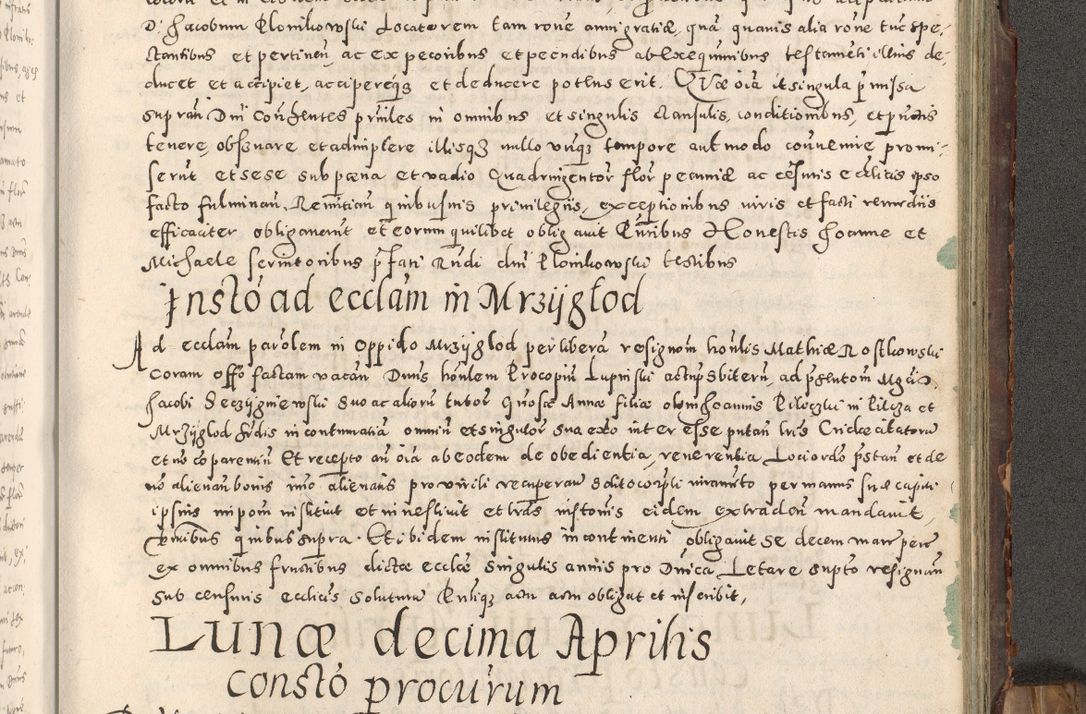 D. Jacobum Plomikowski Locatorem tam rone anni gratiæ, quā quamis alia rone tūc spe-
ctantibus et pertinen, ac ex pecoribus et pecudibus ab exequutiibus testamēti illius de-
ducet et accipiet, accipereqȝ et deducere potius erit. Quæ oīa et singula p̄missa
suprati Dni Conhentes p̄ntes in omnibus et singulis clausulis, conditionibus, et punctis
tenere, obseruare et adimplere illisqȝ nullo unqȝ tempore aut modo conuenire promi-
serūt et sese sub pœna et vadio Quadringentor flor pecuniæ ac cēsuris ecclīcis ipso
facto fulminan. Remittan quibusuis priuilegiis, exceptionibus iuris et facti remediis
efficaciter obligauerūt et eorum quilibet obligauit Pn̄tibus Honestis Joanne et
Michaele seruitoribus p̄fati Rndi dni Plomikowski testibus
Insto ad ecclam in Mrzygłod
Ad ecclam parolem in Oppido Mrzygłod per liberā resignōm honlis Mathiæ Rostkowski
Coram offō factam vacan Dnus honlem Procopiū Lupinski actu p̄sbiterū, ad p̄sentōm Mgci D.
Jacobi Seczygniewski suo ac aliorū tutor Gnosæ Annæ filiæ olim Joannis Pileczki in Pilcza et
Mrzygłod hrdis in contumatiā omniū et singulor sua exto inter esse putan lris Cridæ citatorū
et nō coparentiū Et recepto an oīa ab eodem de obedientia, reuerentia Loci ordō p̄stan et de
nō alienan bonis imō alienatis pro virili recuperan solito corpli iuramēto per manus suæ capiti
ipsius impom instituit et inuestiuit et lrās instōnis eidem extraden mandauit,
Pn̄tibus quibus supra. Et ibidem institutus in continenti obligauit se decem marc pecū
ex omnibus fructibus dictæ ecclæ singulis annis pro Dnica Letare supto resignan
sub censuris ecclīcis soluturū Pn̄tiqȝ actu actm obligat et inscribit,
Lunæ decima Aprilis
Consto procurum